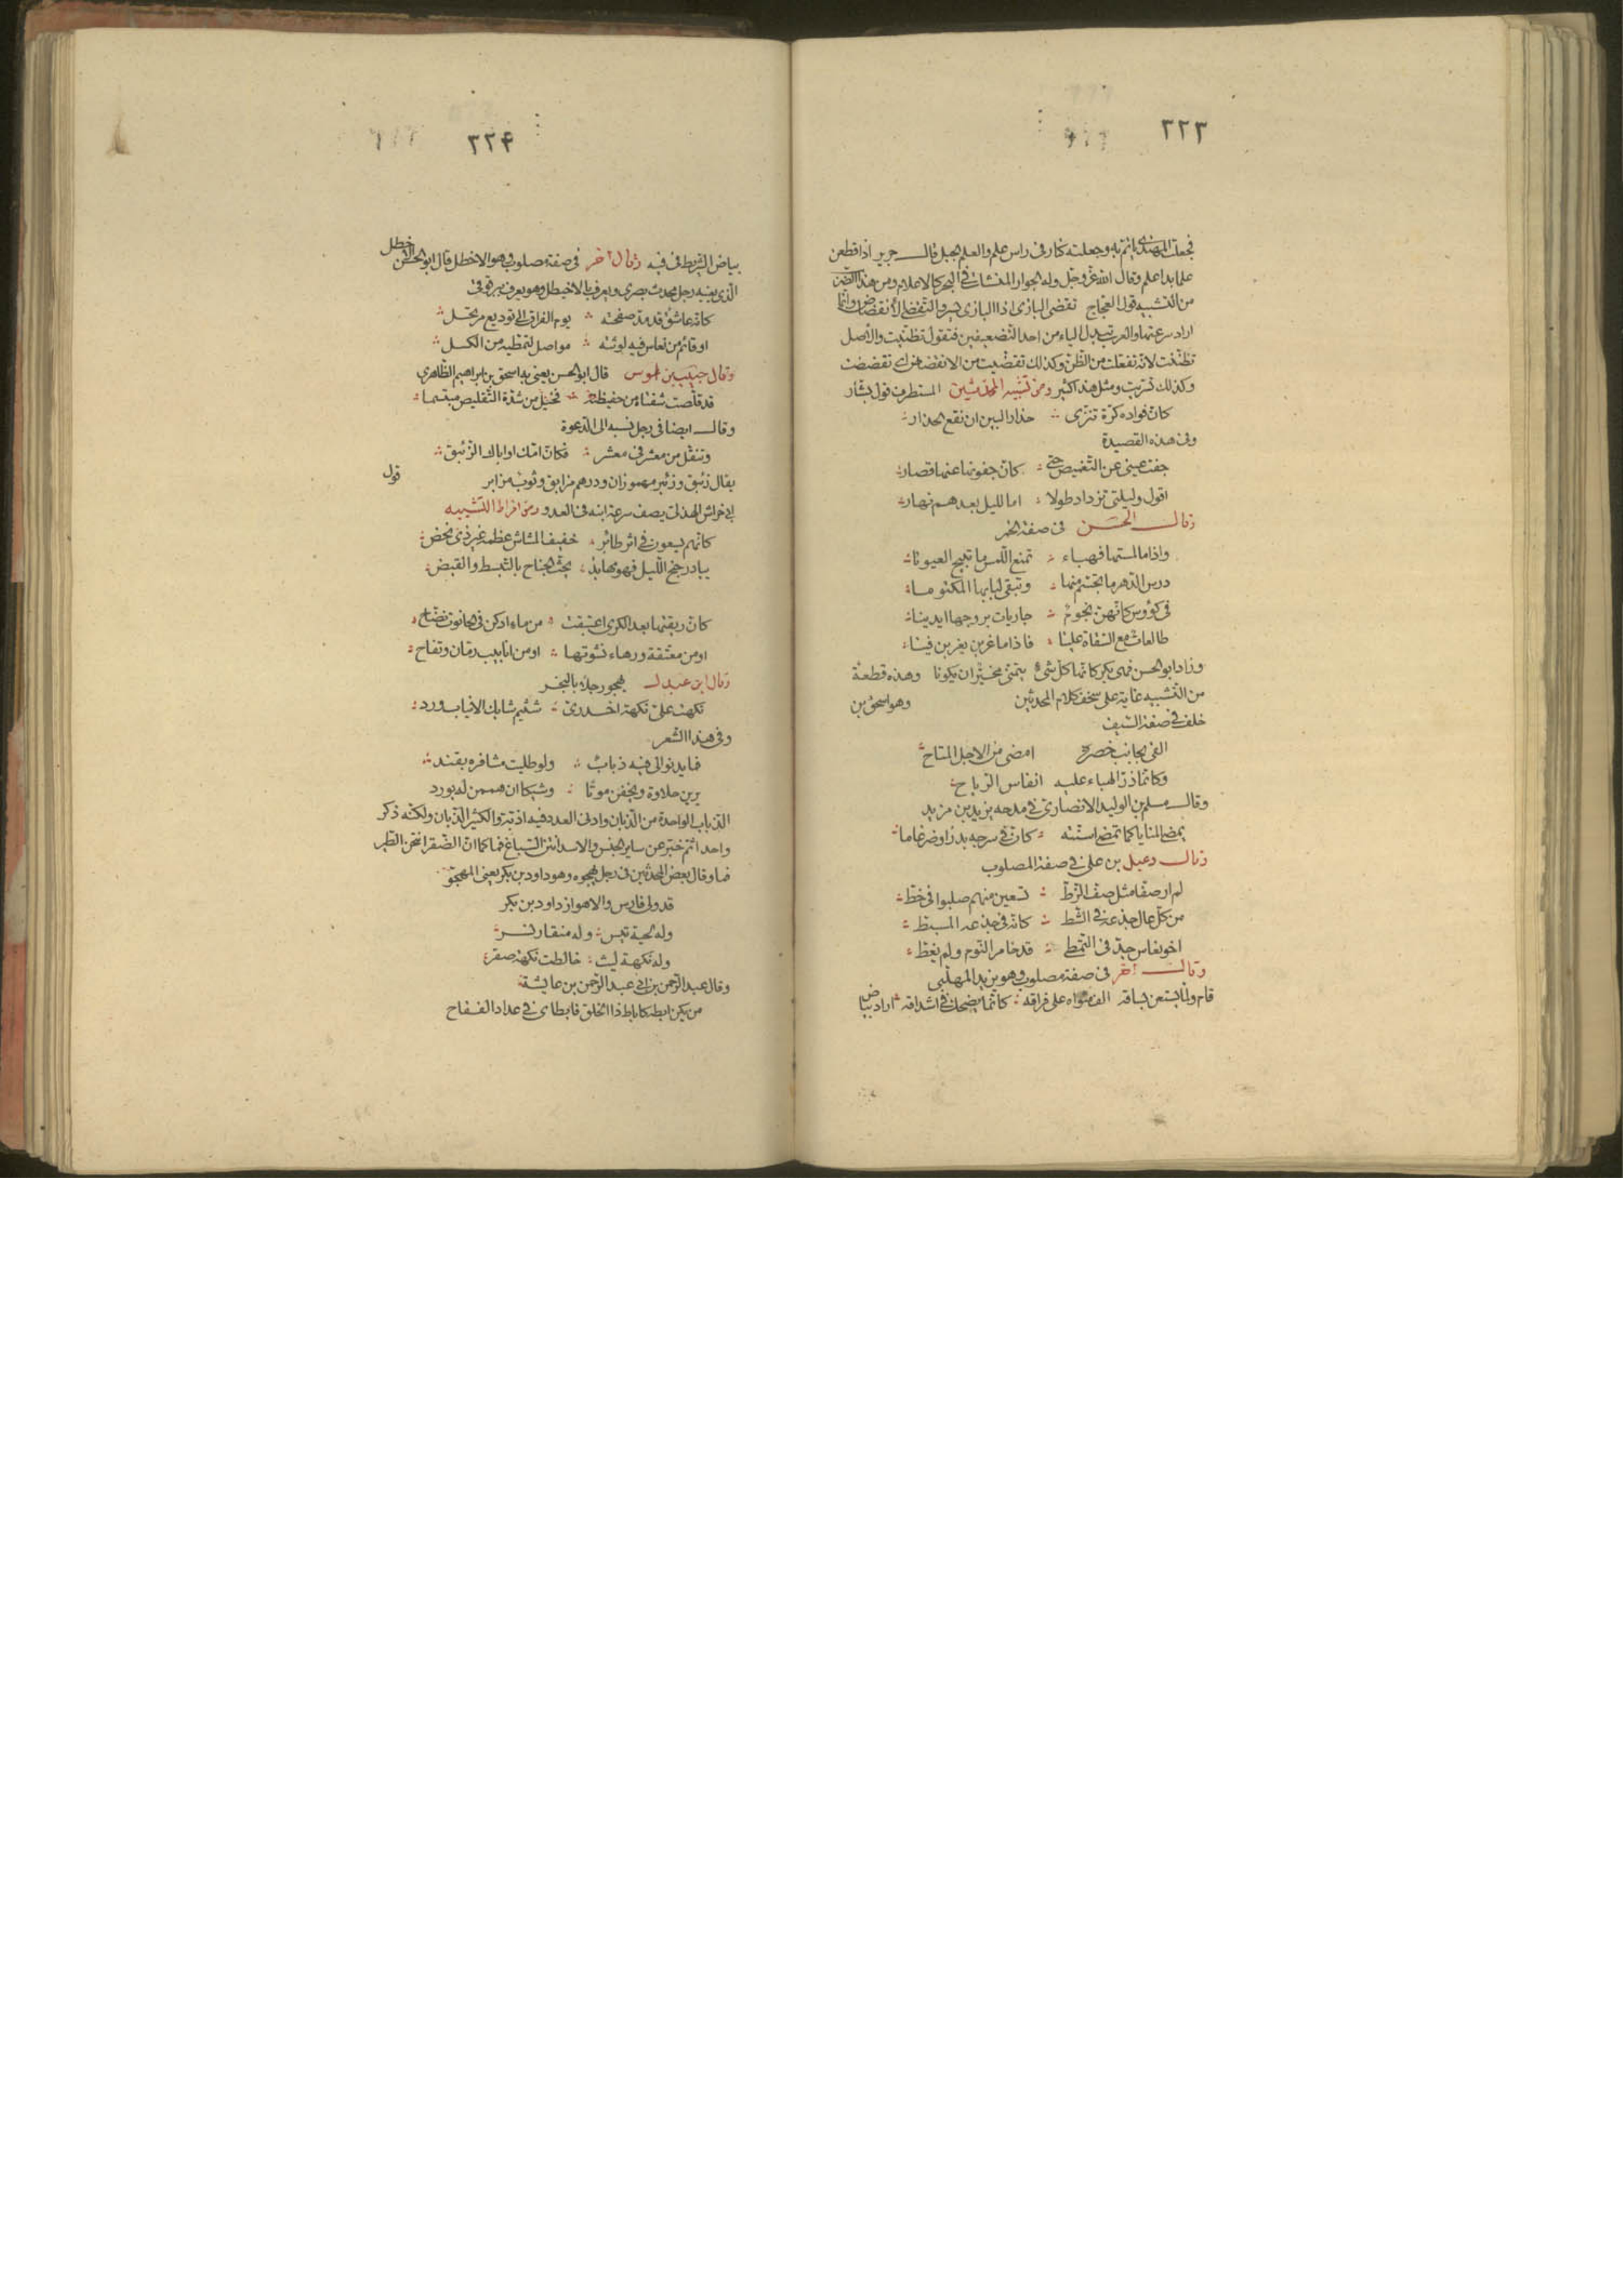 ٢٢٣
فجعلت المهتدى ياتم به وجعلته كنار فى راس علم والعلم الجبل قال جرير اذا قطعن
علما بدا علم وقال الله عز وجل وله الجوار المنشات فى البحر كالاعلام ومن هذا الضرب
من التشبيه قول العجاج تقضى البازى اذا البازى كسر والتقضى الانقضاض وانما
اراد سرعتها والعرب تبدل الياء من احد التضعيفين فتقول تظنيت والاصل
تظننت لانه تفعلت من الظن وكذلك تقضيت من الانقضاض اى تقضضت
وكذلك تسريت ومثل هذا كثير ومن تشبيه المحدثين المستطرف قول بشار
كان فواده كرة تنزى حذار البين ان نفع الحذار
وفى هذه القصيدة
جفت عينى عن التغميض حتى كان جفونها عنها قصار
اقول وليلتى تزداد طولا اما لليل بعدهم نهار
وقال الحسن فى صفة الخمر
واذا ما لمستها فهباء تمنع اللمس ما تبيح العيونا
درس الدهر ما تجسم منها وتبقى لبابها المكنونا
فى كؤوس كانهن نجوم جاريات بروجها ايدينا
طالعات مع السقاة علينا فاذا ما غربن يغربن فينا
وزاد ابو الحسن فهى بكر كانما كل شىء يتمنى مخير ان يكونا وهذه قطعة
من التشبيه غاية على سخف كلام المحدثين وهو اسحق بن
خلف فى صفة السيف
القى بجانب خصره امضى من الاجل المتاح
وكانما ذر الهباء عليه انفاس الرياح
وقال مسلم بن الوليد الانصارى فى مدحه يزيد بن مزيد
يمضى المنايا كما تمضى اسنته كان فى سرجه بدرا وضرغاما
وقال دعبل بن على فى صفة المصلوب
لم ار صفا مثل صف الزط تسعين منهم صلبوا فى خط
من كل عال جذعه فى الشط كانه فى جذعه المسبط
اخو نعاس جد فى التمطى قد خامر النوم ولم يغط
وقال اخر فى صفة مصلوب وهو يزيد المهلبى
قام ولما يستعن بساقه الف مثواه على فراقه كانما يضحك فى اشداقه اراد بياض
٢٢٤
بياض الشريط فى فيه وقال اخر فى صفة مصلوب وهو الاخطل قال ابو الحسن الاخطل
الذى يعنيه رجل محدث بصرى ويعرف بالاخيطل وهو يعرف ببرقوقى
كانه عاشق قد مد صفحته يوم الفراق الى توديع مرتحل
او قائم من نعاس فيه لوثته مواصل لتمطيه من الكسل
وقال حبيب بن اوس قال ابو الحسن يعنى به اسحق بن ابراهيم الظاهرى
قد قلصت شفتاه من حفيظته فخيل من شدة التقليص مبتسما
وقال ايضا فى رجل نسبه الى الدعوة
وتنقل من معشر فى معشر فكان امك او اباك الزئبق
يقال زئبق وزئبر مهموزان ودرهم مزابق وثوب مزابر قول
ابى خراش الهذلى يصف سرعة ابنه فى العدو ومن افراط التشبيه
كانهم يسعون فى اثر طائر خفيف المشاش عظمه غير ذى نحض
يبادر جنح الليل فهو مهابذ يحث الجناح بالتبسط والقبض
كان ريقتها بعد الكرى اغتبقت من ماء ادكن فى الحانوت نضاح
او من معتقة ورهاء نشوتها او من انابيب رمان وتفاح
وقال ابن عبدل يهجو رجلا بالبخر
نكهت على نكهة اخدرى شتيم شابك الانياب ورد
وفى هذا الشعر
فما يدنو الى فيه ذباب ولو طليت مشافره بقند
يرين حلاوة ويخفن موتا وشيكا ان هممن له بورد
الذباب الواحدة من الذبان وادنى العدد فيه اذبة والكثير الذبان ولكنه ذكر
واحدا ثم خبر عن ساير الجنس والاسد انتن السباغ فما كما ان الصقر انتن الطير
فما وقال بعض المحدثين فى رجل يهجوه وهو داود بن بكر يعنى المهجو
قد ولى فارس والاهواز داود بن بكر
وله لحية تيس وله منقار نسر
وله نكهة ليث خالطت نكهة صقر
وقال عبد الرحمن بن ابى عبد الرحمن بن عايشة
من يكن ابطه كاباط ذا الخلق فابطاى فى عداد الفقاح